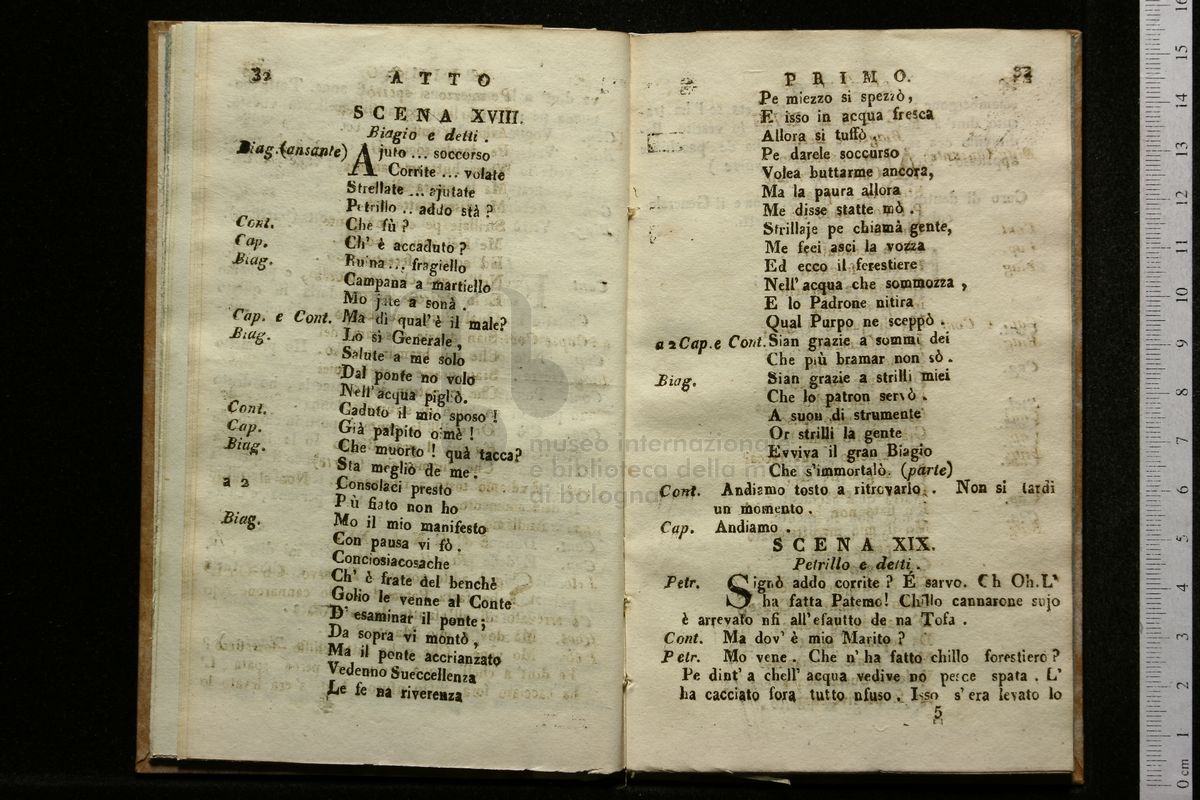 32 ATTO
SCENA XVIII.
Biagio e detti.
Biag. (ansante) Ajuto ... soccorso
Corrite ... volate
Strellate ... ajutate
Petrillo .. addo stà ?
Cont. Che fù ?
Cap. Ch' è accaduto ?
Biag. Ruina ... fragiello
Campana a martiello
Mo jate a sonà .
Cap. e Cont. Ma di qual' è il male?
Biag. Lo sì Generale,
Salute a me solo
Dal ponte no volo
Nell' acqua pigliò.
Cont. Caduto il mio sposo !
Cap. Già palpito oimè !
Biag. Che muorto ! quà tacca?
Sta meglio de me .
a 2 Consolaci presto
Più fiato non ho
Biag. Mo il mio manifesto
Con pausa vi fò .
Conciosiacosache
Ch' è frate del benchè
Golio le venne al Conte
D' esaminar il ponte;
Da sopra vi montò ,
Ma il ponte accrianzato
Vedenno Sueccellenza
Le fe na riverenza
PRIMO. 33
Pe miezzo si spezzò,
E isso in acqua fresca
Allora si tuffò .
Pe darele soccurso
Volea buttarme ancora,
Ma la paura allora
Me disse statte mò .
Strillaje pe chiamà gente,
Me feci asci la vozza
Ed ecco il ferestiere
Nell' acqua che sommozza ,
E lo Padrone nitira
Qual Purpo ne sceppò .
a 2 Cap. e Cont. Sian grazie a sommi dei
Che più bramar non sò .
Biag. Sian grazie a strilli miei
Che lo patron servò .
A suon di strumente
Or strilli la gente
Evviva il gran Biagio
Che s'immortalò. (parte)
Cont. Andiamo tosto a ritrovarlo . Non si tardi
un momento .
Cap. Andiamo .
SCENA XIX.
Petrillo e detti .
Petr. Signò addo corrite ? È sarvo. Oh Oh. L'
ha fatta Paterno! Chillo cannarone sujo
è arrevato nfi all'esautto de na Tofa .
Cont. Ma dov' è mio Marito ?
Petr. Mo vene . Che n' ha fatto chillo forestiero ?
Pe dint' a chell' acqua vedive no pesce spata . L'
ha cacciato fora tutto nfuso . Isso s' era levato lo
5
museo internazionale
e biblioteca della m
di bologna